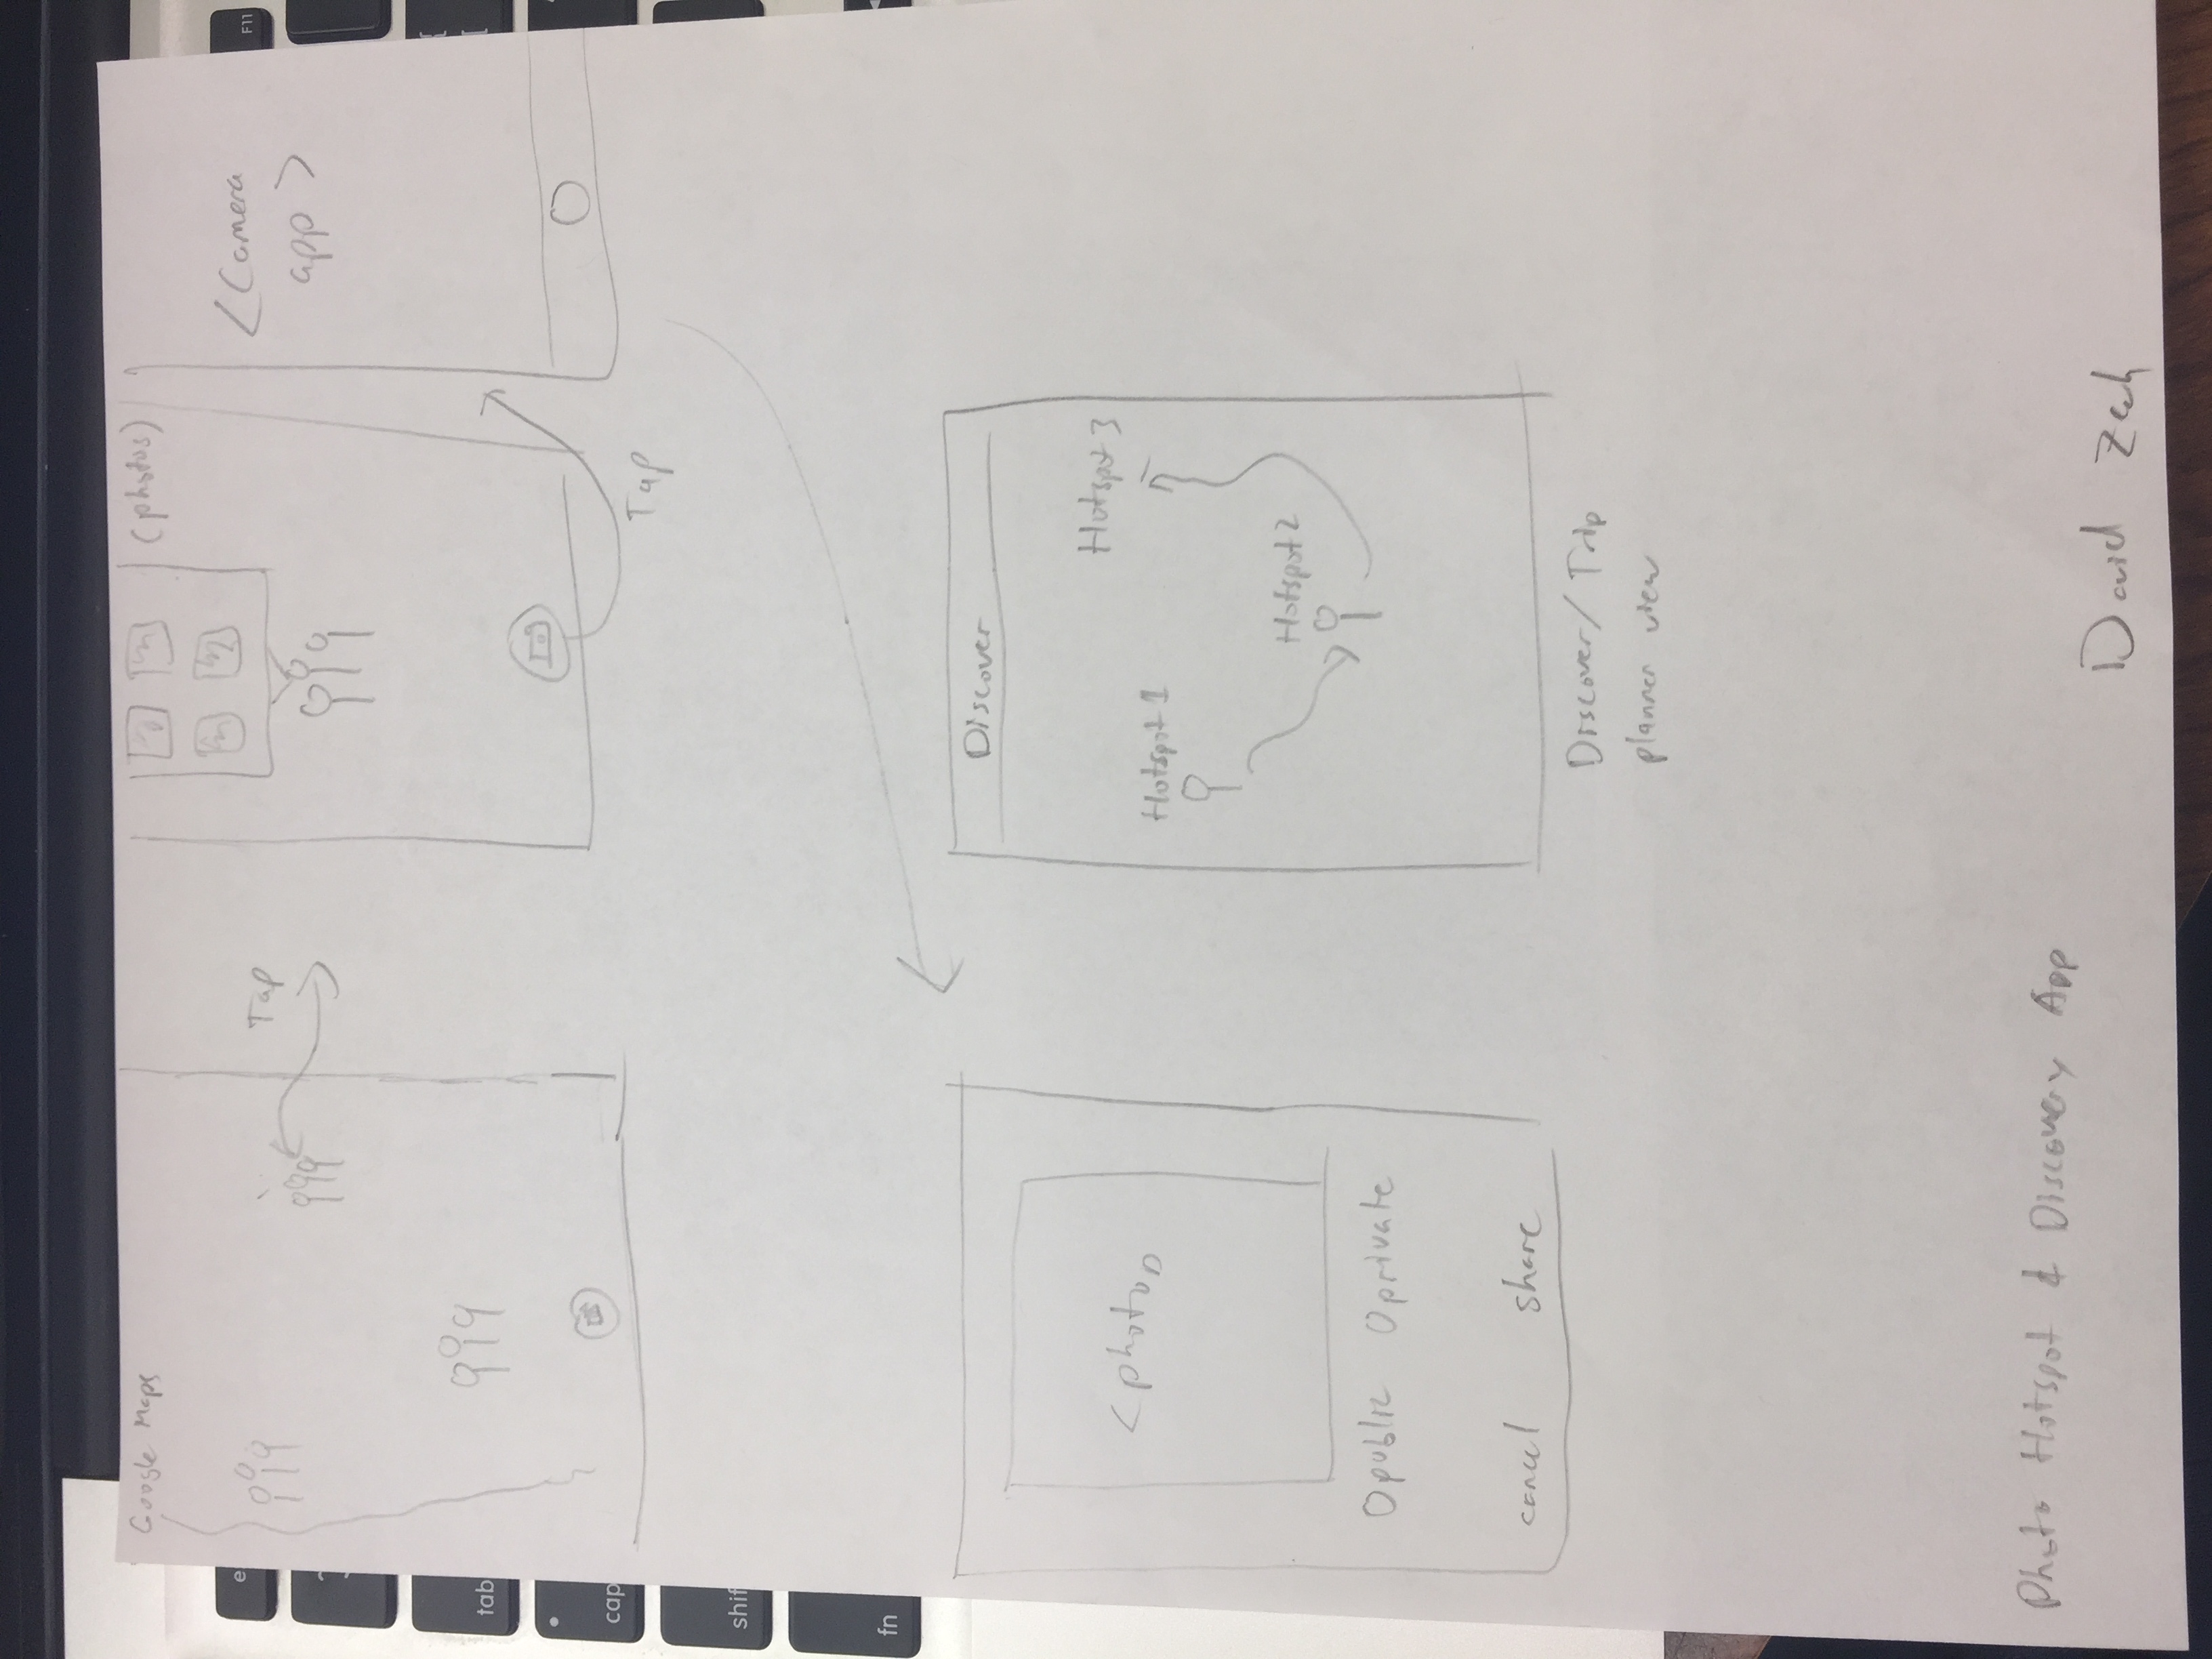 Google Maps
Tap
(photos)
<Camera
app>
Tap
<photo>
O public O private
cancel share
Discover
Hotspot 3
Hotspot 1
Hotspot 2
Discover/ Trip
planner view
Photo Hotspot & Discovery App
David
e
tab
cap
shif
fn
F11